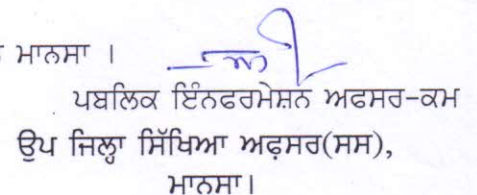 ਮਾਨਸਾ ।
ਪਬਲਿਕ ਇੰਨਫਰਮੇਸ਼ਨ ਅਫਸਰ-ਕਮ
ਉਪ ਜਿਲ੍ਹਾ ਸਿੱਖਿਆ ਅਫ਼ਸਰ(ਸਸ),
ਮਾਨਸਾ।